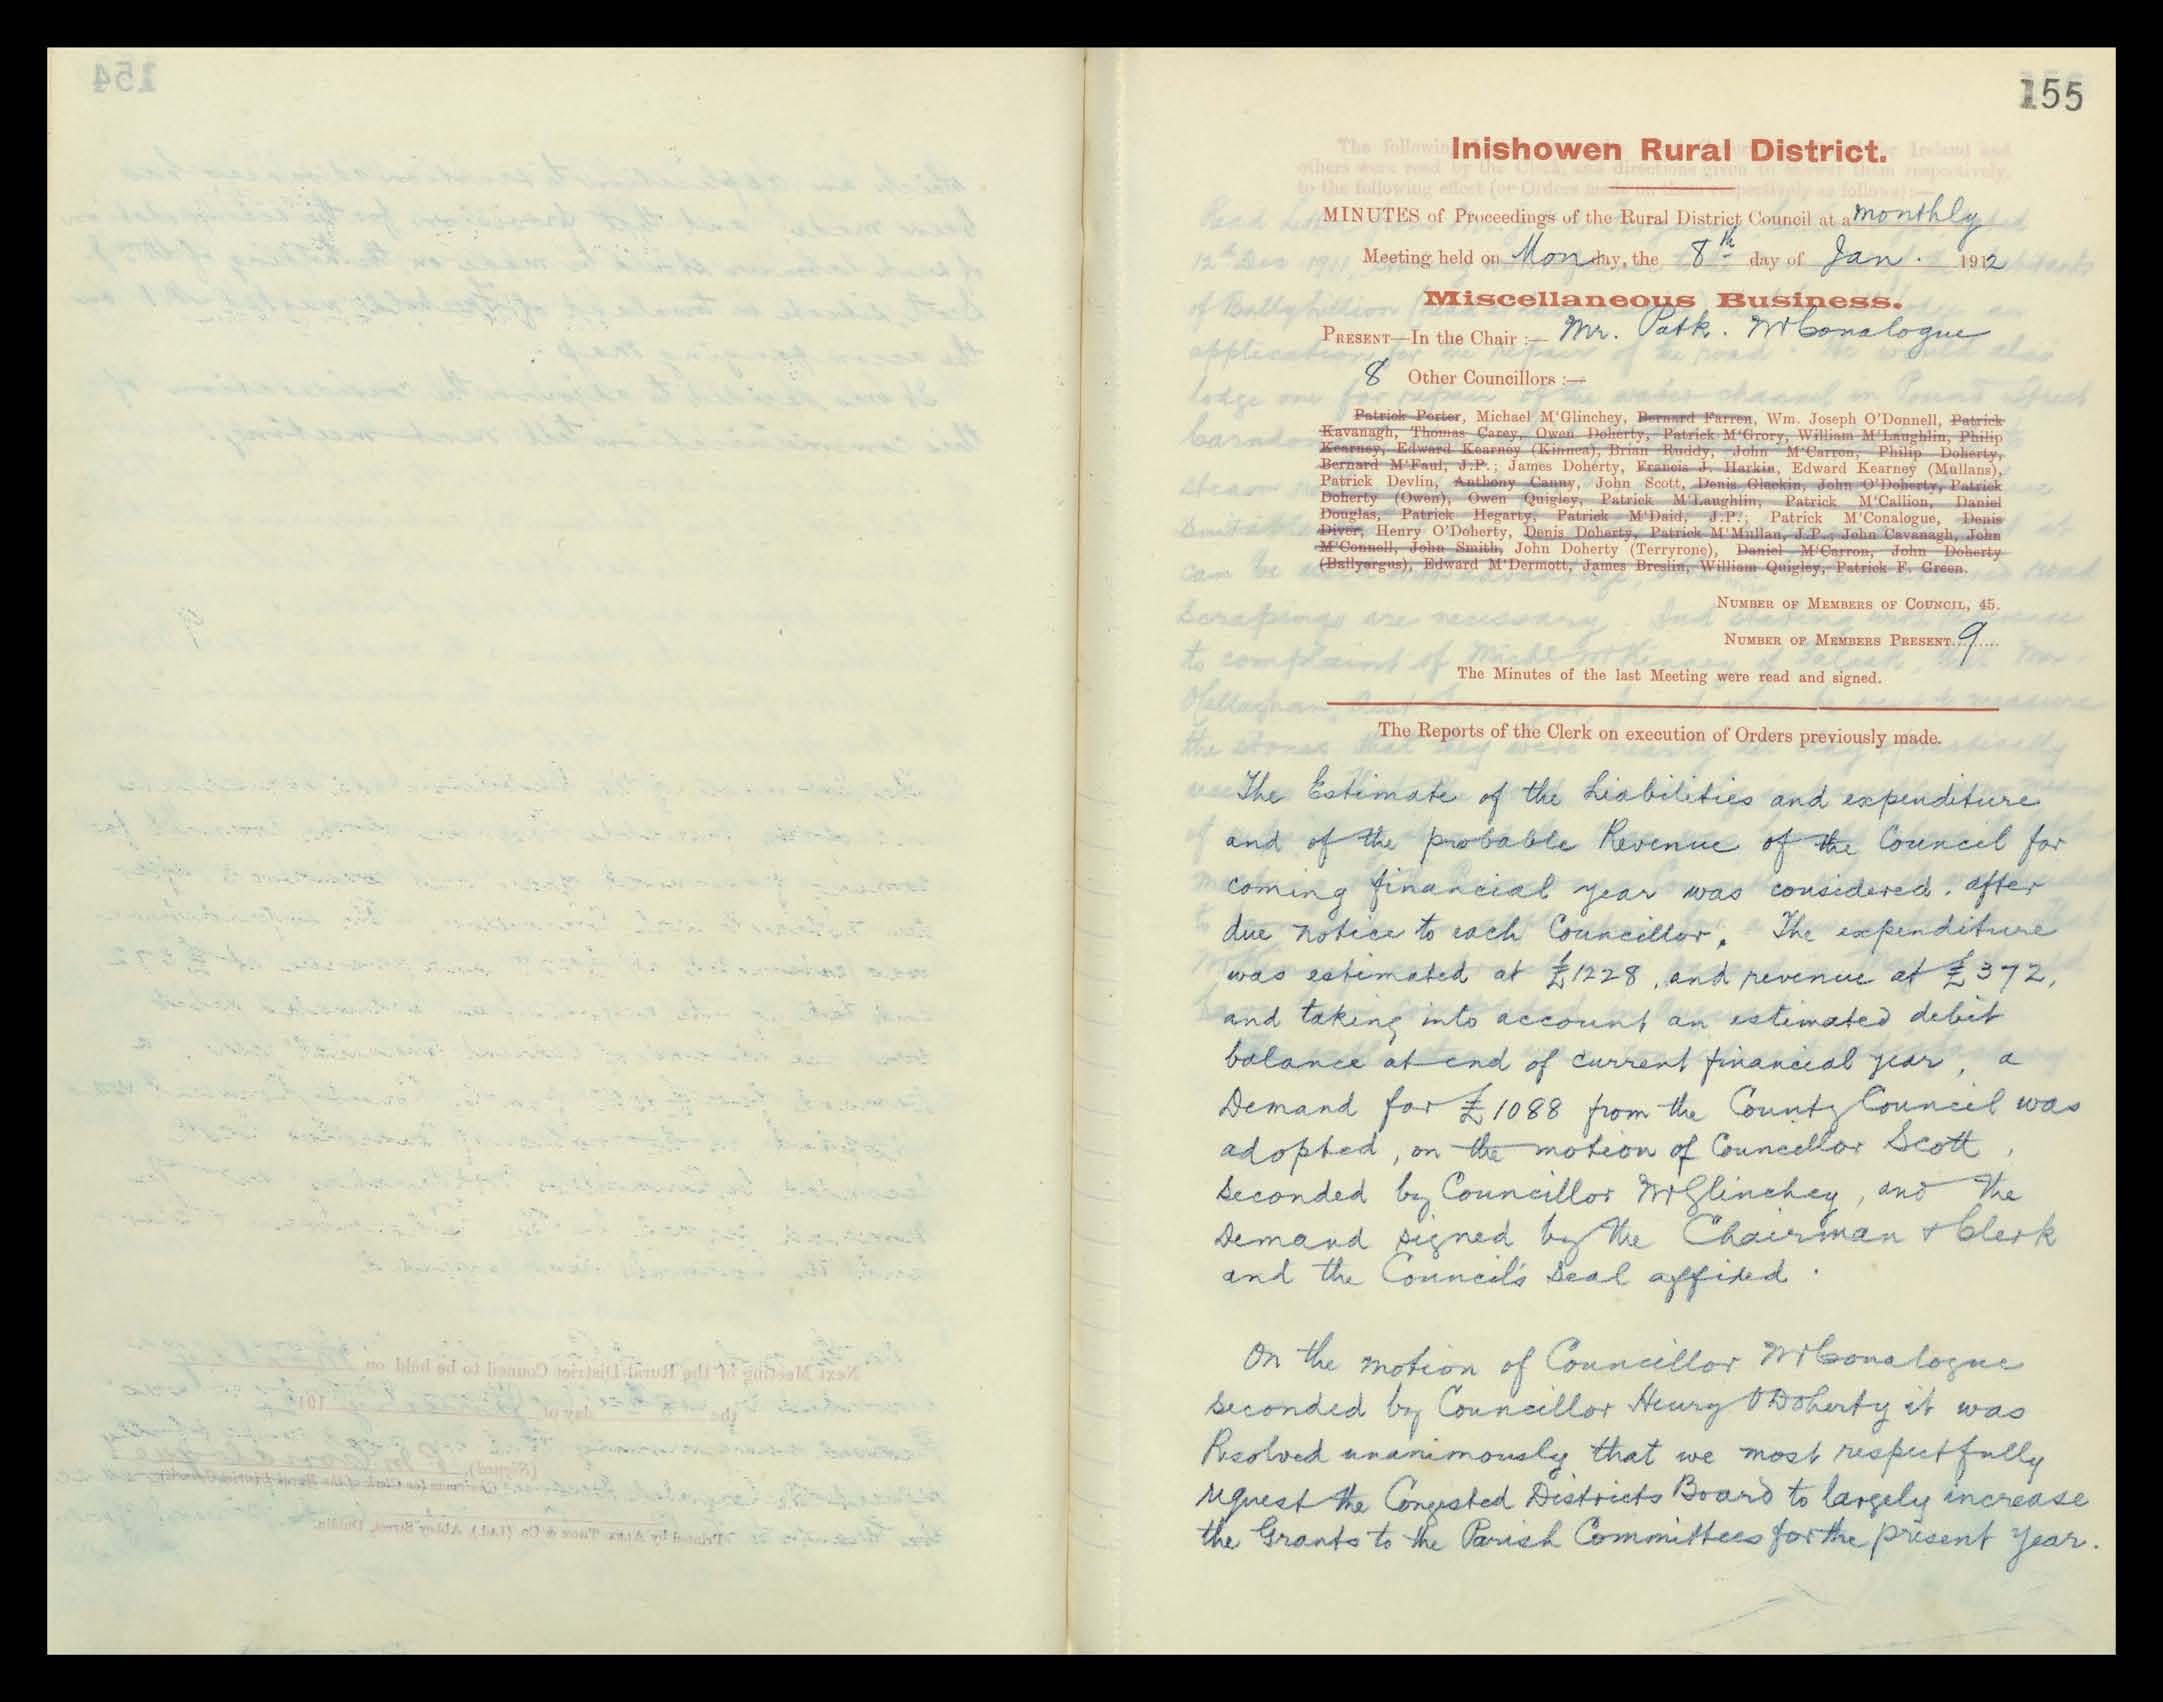 155
Inishowen Rural District.
MINUTES of Proceedings of the Rural District Council at a monthly
Meeting held on Monday, the 8th day of Jan. 1912
Miscellaneous Business.
PRESENT—In the Chair :— Mr. Patk. McConalogue
8 Other Councillors :—
Patrick Porter, Michael M'Glinchey, Bernard Farren, Wm. Joseph O'Donnell, Patrick
Kavanagh, Thomas Carey, Owen Doherty, Patrick M'Grory, William M'Laughlin, Philip
Kearney, Edward Kearney (Kinnea), Brian Ruddy, John M'Carron, Philip Doherty,
Bernard M'Faul, J.P.; James Doherty, Francis J. Harkin, Edward Kearney (Mullans),
Patrick Devlin, Anthony Canny, John Scott, Denis Glackin, John O'Doherty, Patrick
Doherty (Owen), Owen Quigley, Patrick M'Laughlin, Patrick M'Callion, Daniel
Douglas, Patrick Hegarty, Patrick M'Daid, J.P.; Patrick M'Conalogue, Denis
Diver, Henry O'Doherty, Denis Doherty, Patrick M'Mullan, J.P., John Cavanagh, John
M'Connell, John Smith, John Doherty (Terryrone), Daniel M'Carron, John Doherty
(Ballyargus), Edward M'Dermott, James Breslin, William Quigley, Patrick F. Green.
NUMBER OF MEMBERS OF COUNCIL, 45.
NUMBER OF MEMBERS PRESENT 9
The Minutes of the last Meeting were read and signed.
The Reports of the Clerk on execution of Orders previously made.
The Estimate of the Liabilities and expenditure
and of the probable Revenue of the Council for
coming financial year was considered. after
due notice to each Councillor. The expenditure
was estimated at £1228, and revenue at £372,
and taking into account an estimated debit
balance at end of current financial year, a
Demand for £1088 from the County Council was
adopted, on the motion of Councillor Scott,
seconded by Councillor McGlinchey, and the
Demand signed by the Chairman & Clerk
and the Council's Seal affixed.
On the motion of Councillor McConalogue
seconded by Councillor Henry O'Doherty it was
Resolved unanimously that we most respectfully
request the Congested Districts Board to largely increase
the Grants to the Parish Committees for the present year.